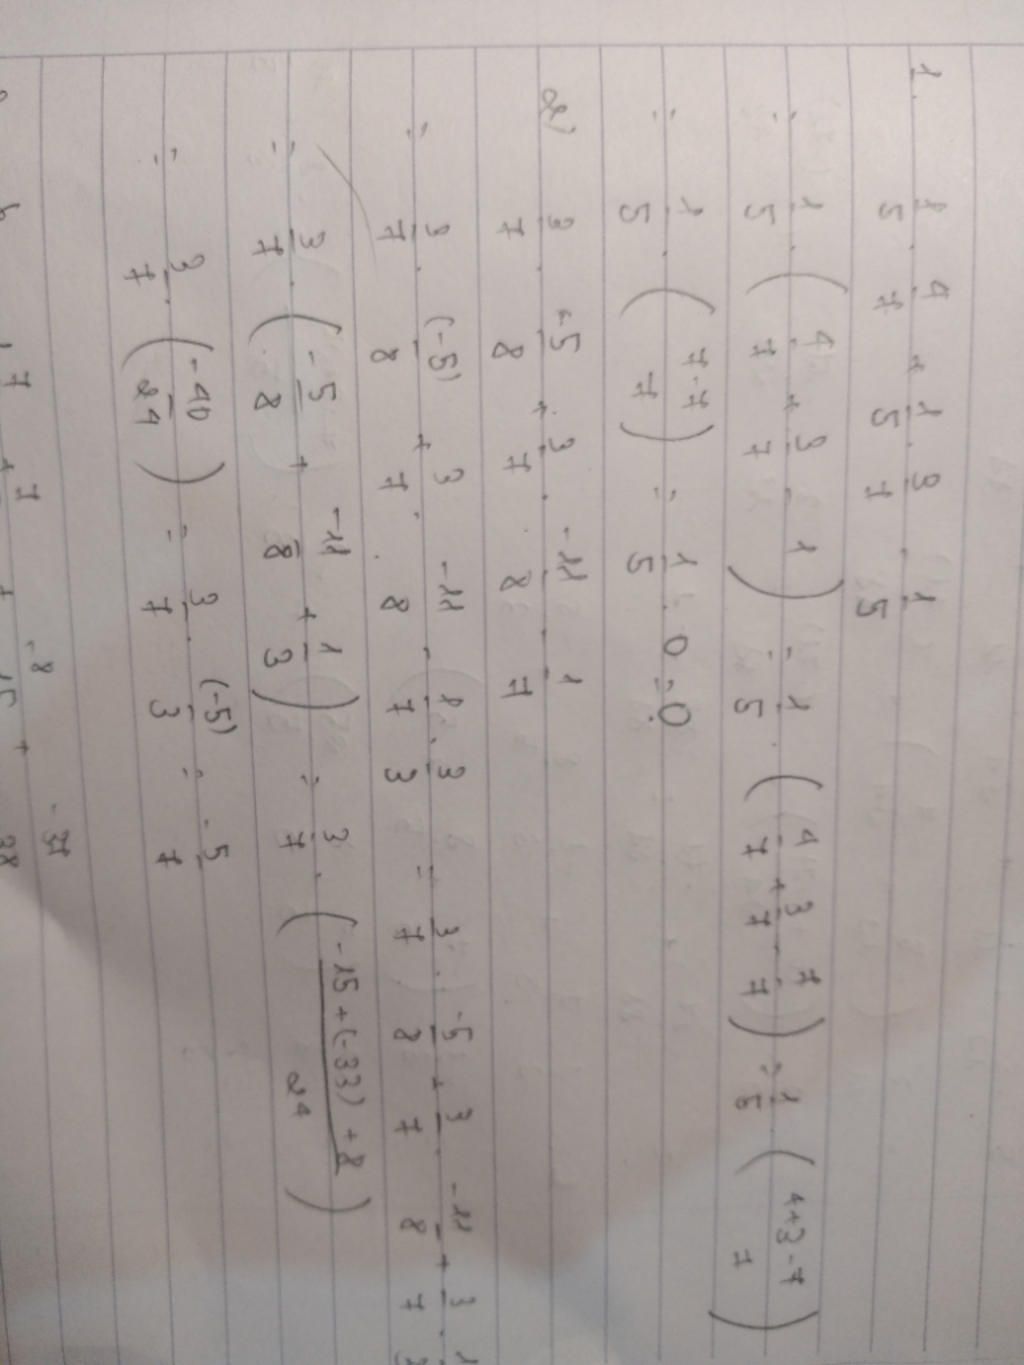 1. 1/5 . 4/7 + 1/5 . 3/7 - 1/5
= 1/5 . ( 4/7 + 3/7 - 1 ) = 1/5 . ( 4/7 + 3/7 - 7/7 ) = 1/5 ( (4+3-7)/7 )
= 1/5 . ( (7-7)/7 ) = 1/5 . 0 = 0
2) 3/7 . -5/8 + 3/7 . -11/8 . 1/7
= 3/7 . (-5)/8 + 3/7 . -11/8 . 1/7 . 3/3 = 3/7 . -5/8 + 3/7 . -11/8 + 3/7 . 1/3
= 3/7 . ( -5/8 + -11/8 + 1/3 ) = 3/7 . ( (-15+(-33)+8)/24 )
= 3/7 . ( -40/24 ) = 3/7 . (-5)/3 = -5/7